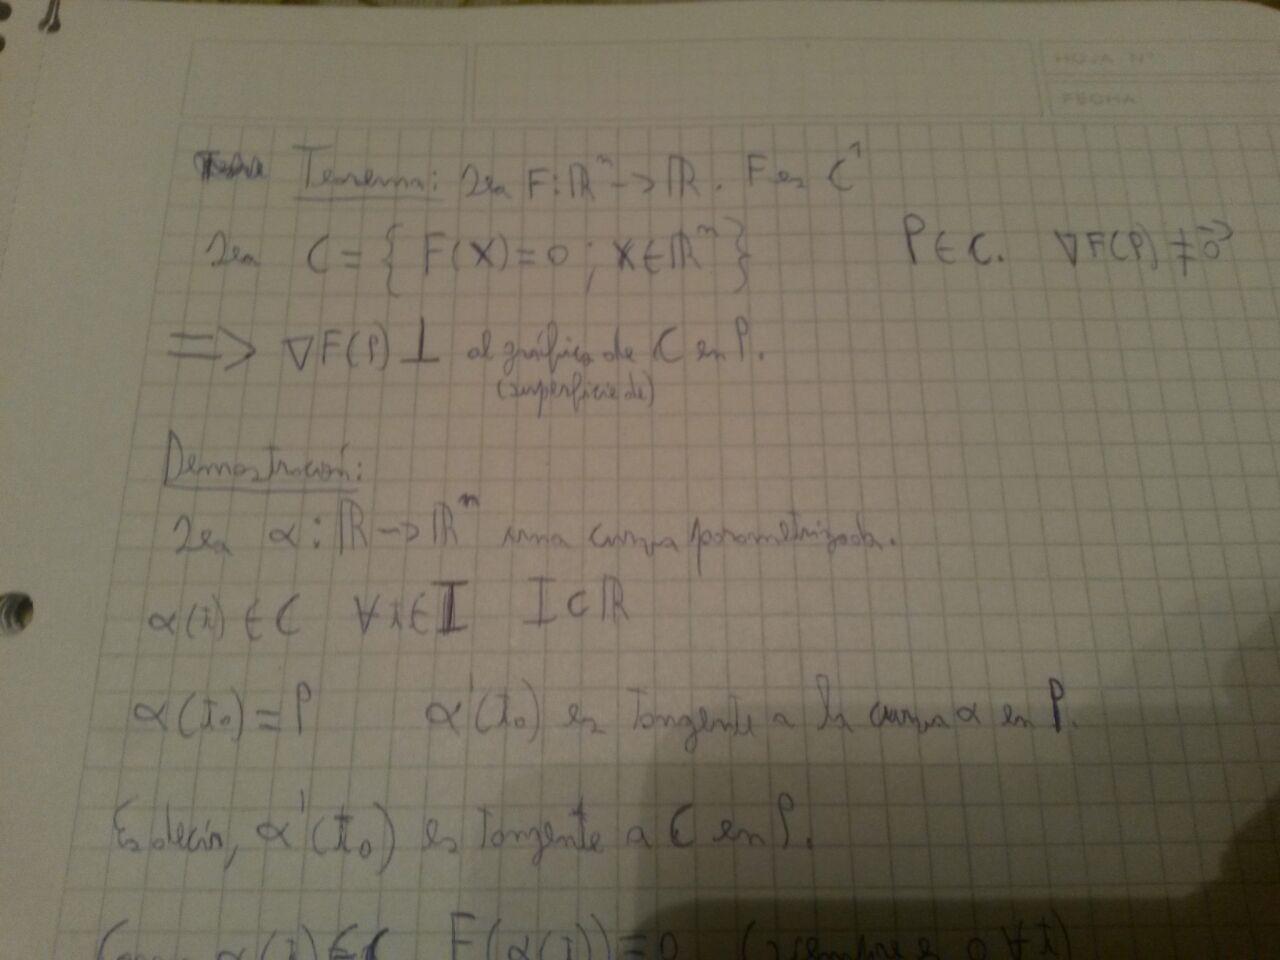 HOJA Nº
FECHA
Teorema: Sea F: ℝⁿ -> ℝ. F es C¹
Sea C = { F(X) = 0 ; X ∈ ℝⁿ } P ∈ C. ∇F(P) ≠ 0⃗
=> ∇F(P) ⊥ al gráfico de C en P.
(superficie de)
Demostración:
Sea α: ℝ -> ℝⁿ una curva parametrizada.
α(t) ∈ C ∀t ∈ I I ⊂ ℝ
α(t₀) = P α'(t₀) es tangente a la curva α en P.
Es decir, α'(t₀) es tangente a C en P.
Como α(t) ∈ C F(α(t)) = 0 (siempre es 0 ∀t)